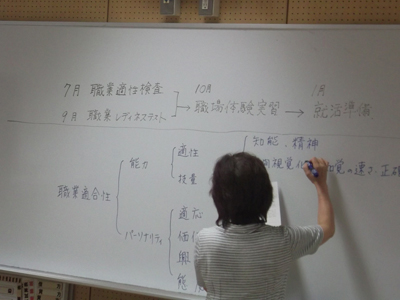 7月 職業適性検査
10月
1月
9月 職業レディネステスト
職場体験実習
就活準備
職業適合性
能力
適性
知能・精神
視覚
覚の速さ・正確
技量
パーソナリティ
適応
価
興